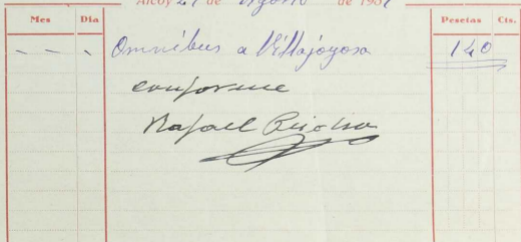 Alcoy 21 de Agosto de 193
Mes Dia Pesetas Cts.
- - - Omnibus a Villajoyosa 140
conforme
Rafael